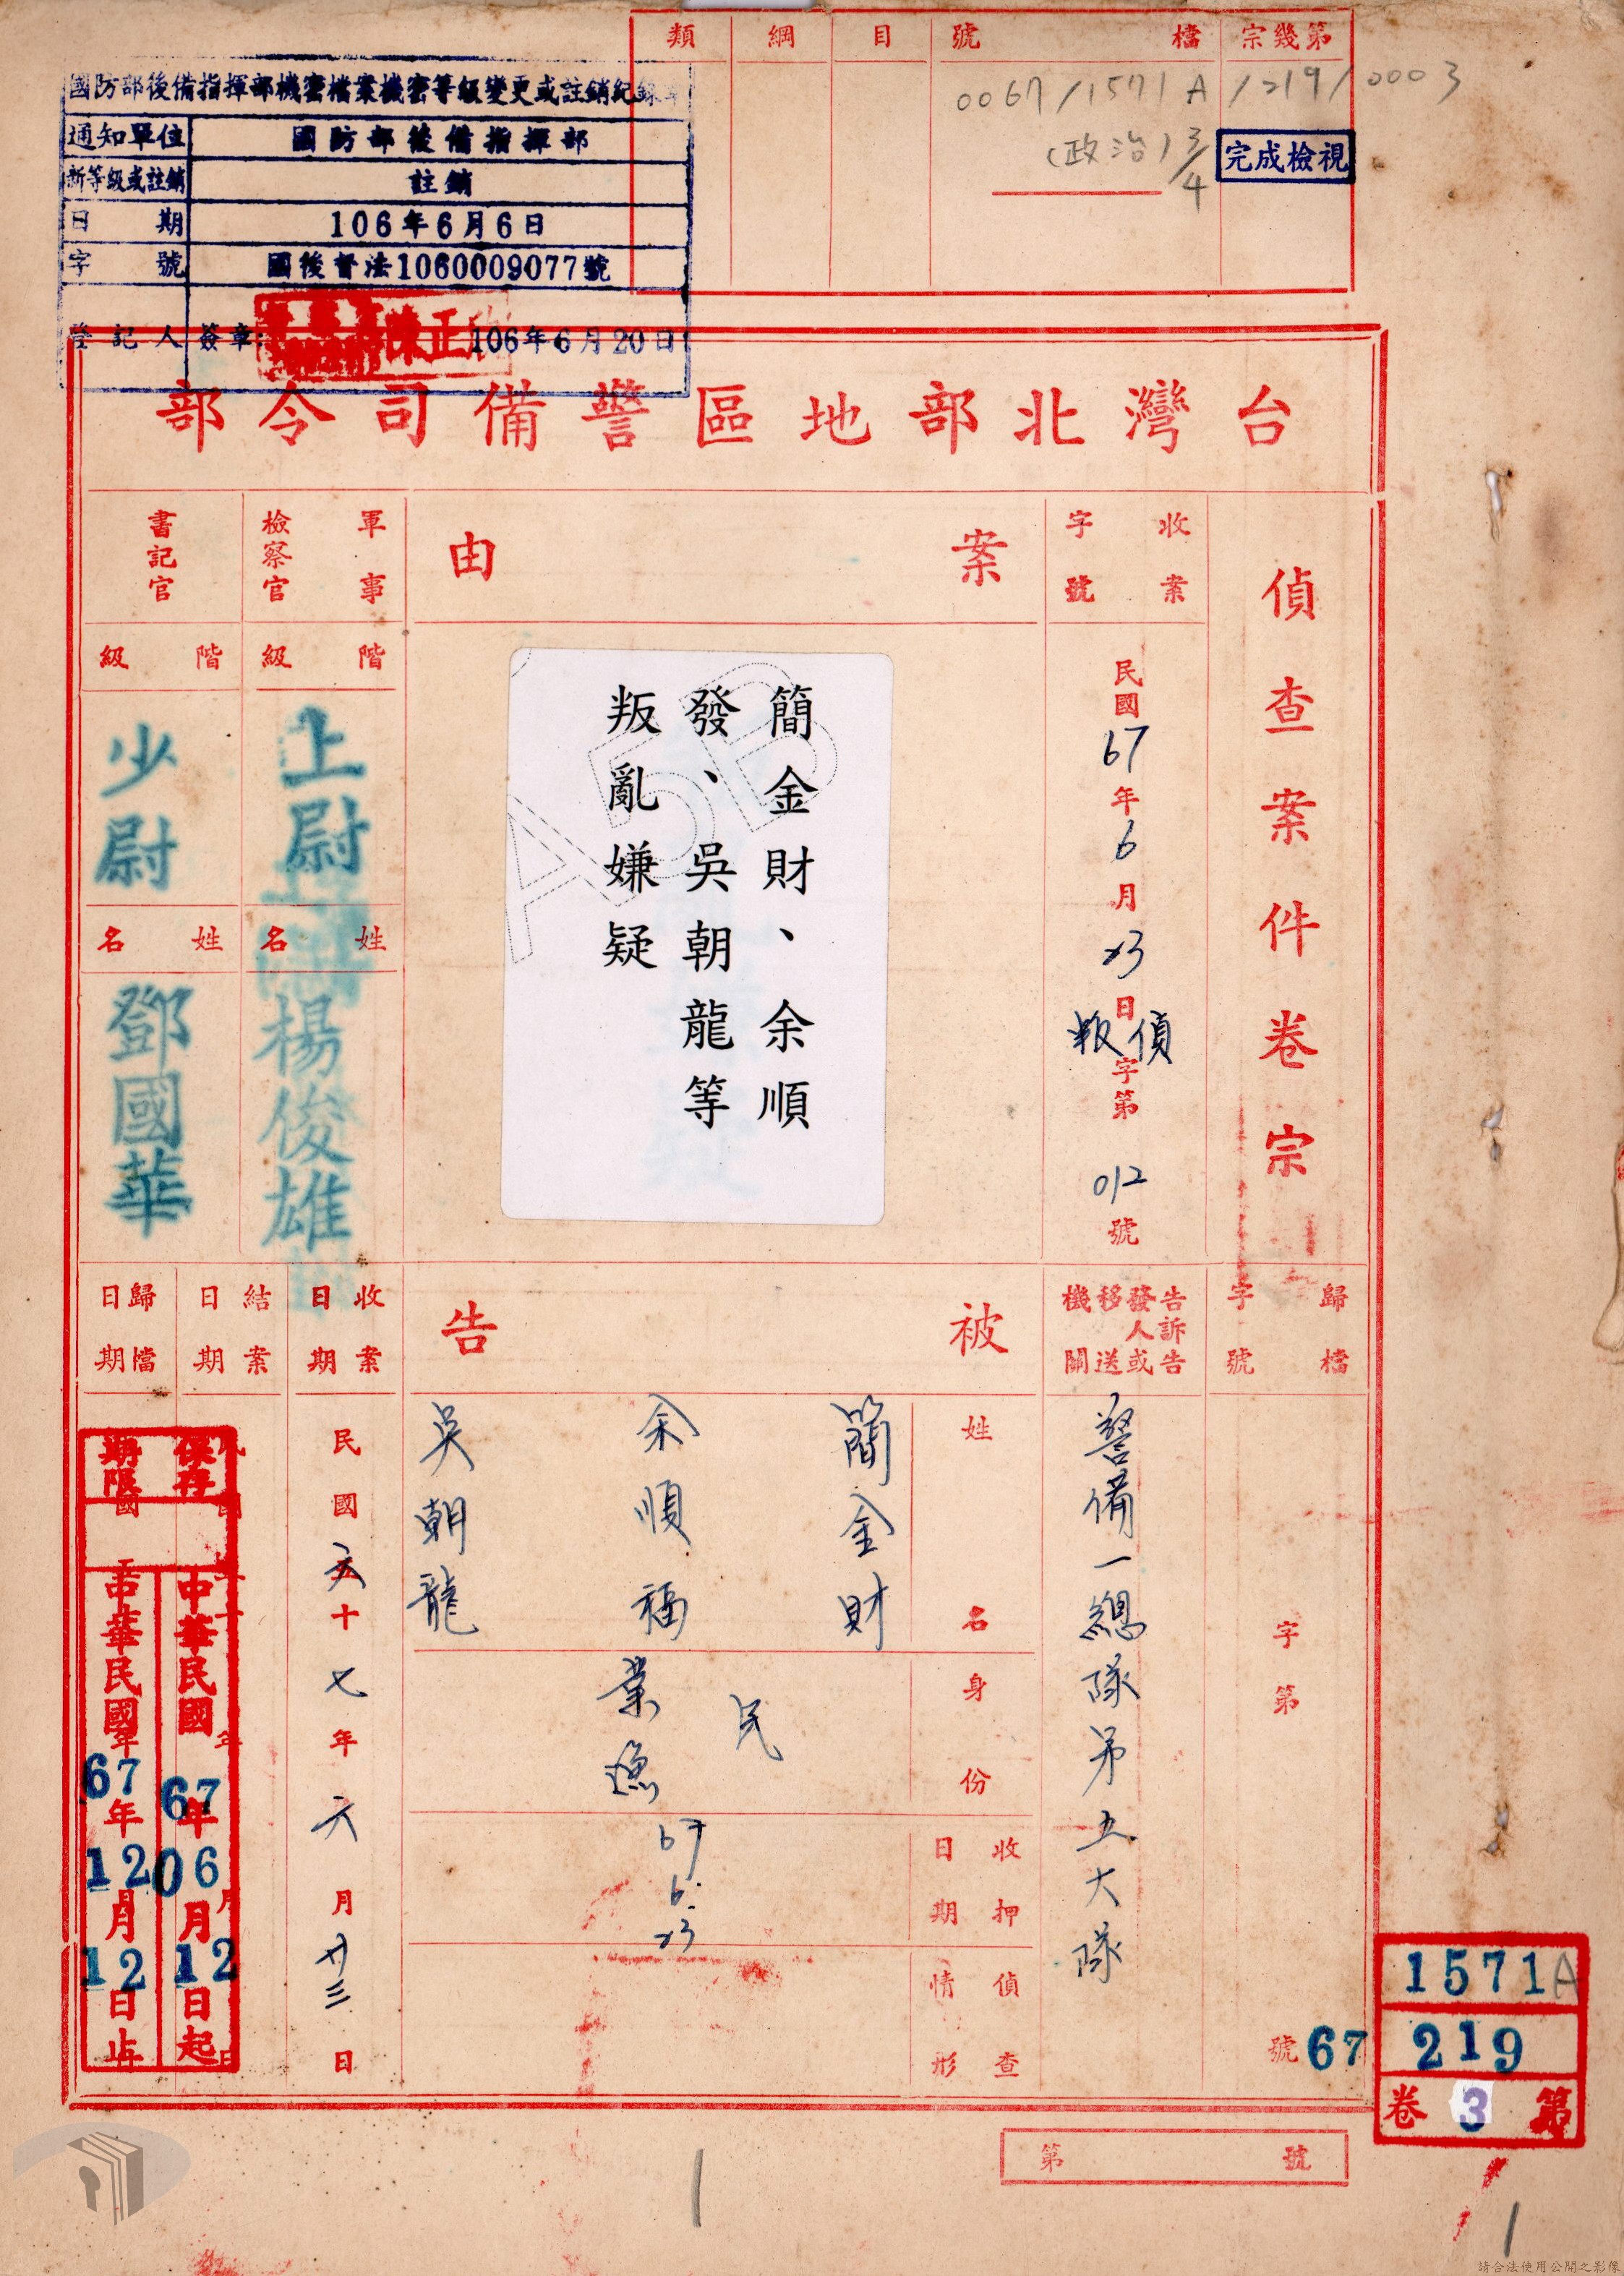 類 綱 目 號 檔 宗幾第
0067/1571A/219/0003
(政治) 3/4
完成檢視
國防部後備指揮部機密檔案機密等級變更或註銷紀錄
通知單位 國防部後備指揮部
新等級或註銷 註銷
日期 106年6月6日
字號 國後督法1060009077號
登記人 簽章 陳正 106年6月20日
台灣北部地區警備司令部
偵查案件卷宗
收案字號
民國67年6月23日
叛偵字第012號
案由
簡金財、余順
發、吳朝龍等
叛亂嫌疑
軍事檢察官
階級
上尉
姓名
楊俊雄
書記官
階級
少尉
姓名
鄧國華
歸檔字號
字第 號 67
告訴告發人或移送機關
警備一總隊第五大隊
被告
姓名
簡金財
余順福
吳朝龍
身份
民
業漁
收押日期
67
6.
23
偵查情形
收案日期
民國六十七年六月廿三日
結案日期
歸檔日期
保存期限
中華民國67年06月12日起
中華民國67年12月12日止
1571A
219
第3卷
第 號
1
1
請合法使用公開之影像